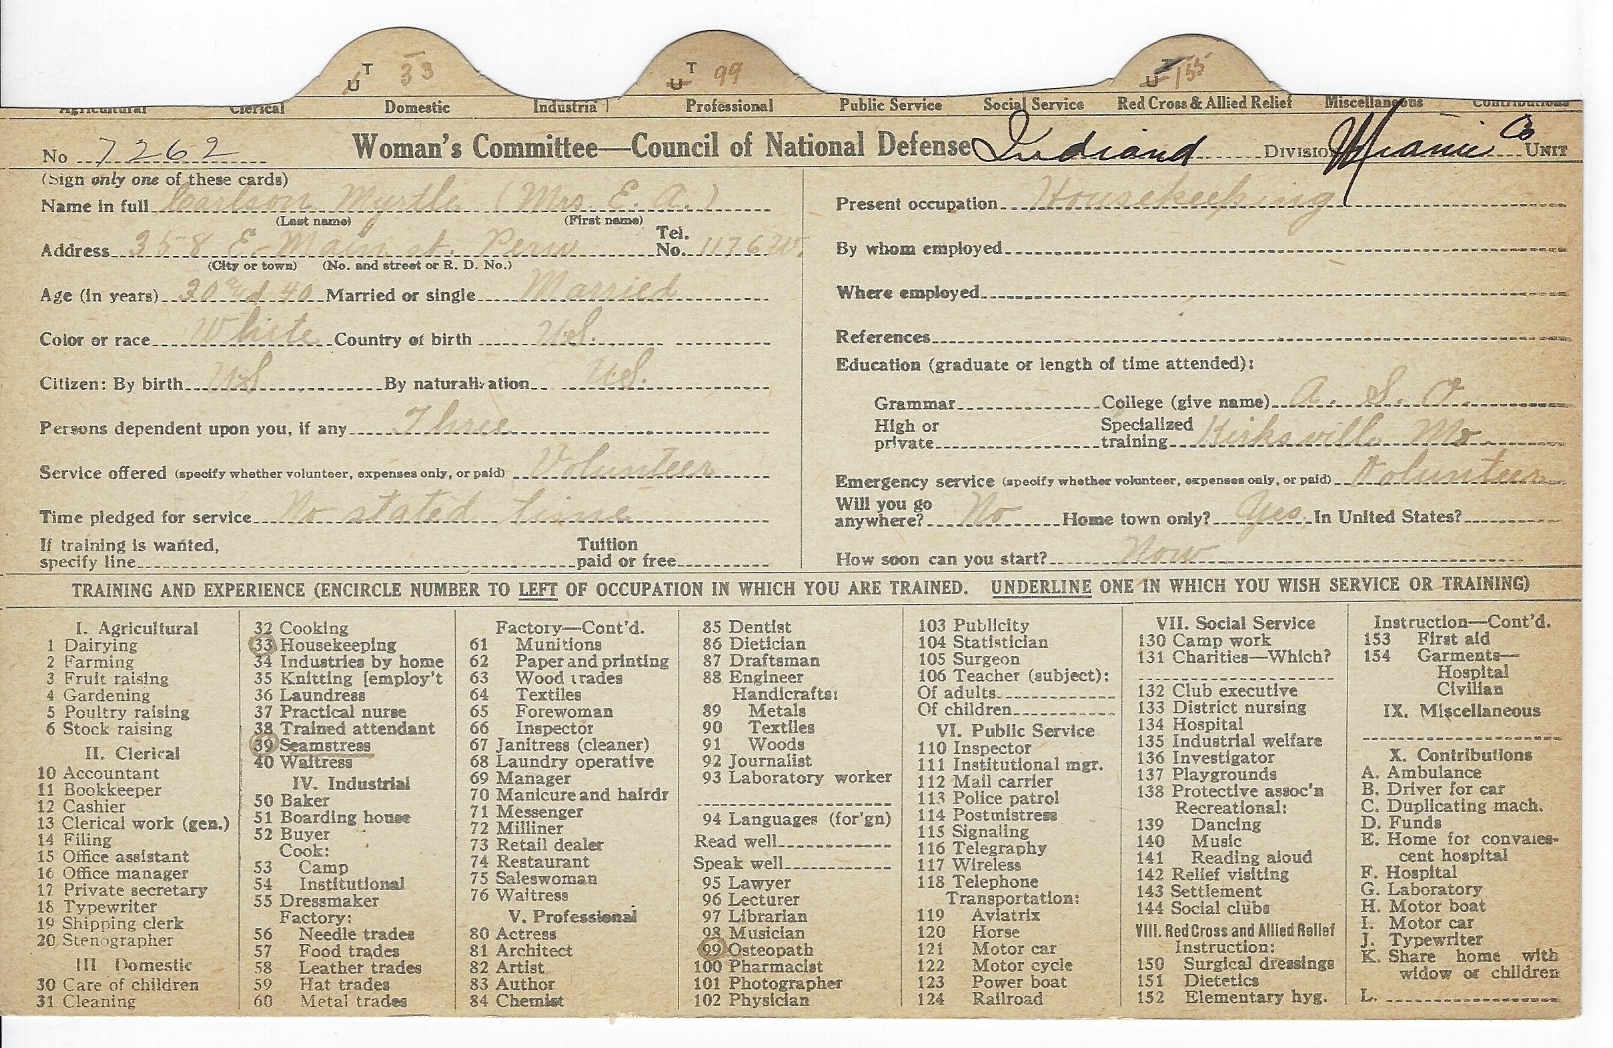 U T 33
U T 99
U T 155
Agricultural Clerical Domestic Industrial Professional Public Service Social Service Red Cross & Allied Relief Miscellaneous Contributions
No 7262 Woman's Committee—Council of National Defense Indiana Division Miami Co Unit
(Sign only one of these cards)
Name in full Carlson Myrtle (Mrs. E. A.)
(Last name) (First name)
Address 358 E-Main st. Peru Tel. No. 1176W.
(City or town) (No. and street or R. D. No.)
Age (in years) 30 and 40 Married or single Married
Color or race White Country of birth U.S.
Citizen: By birth U.S By naturalization U.S.
Persons dependent upon you, if any Three
Service offered (specify whether volunteer, expenses only, or paid) Volunteer
Time pledged for service No stated time
If training is wanted, specify line Tuition paid or free
Present occupation Housekeeping
By whom employed
Where employed
References
Education (graduate or length of time attended):
Grammar College (give name) A. S. O.
High or private Specialized training Kirksville Mo.
Emergency service (specify whether volunteer, expenses only, or paid) Volunteer
Will you go anywhere? No Home town only? Yes In United States?
How soon can you start? Now
TRAINING AND EXPERIENCE (ENCIRCLE NUMBER TO LEFT OF OCCUPATION IN WHICH YOU ARE TRAINED. UNDERLINE ONE IN WHICH YOU WISH SERVICE OR TRAINING)
I. Agricultural
1 Dairying
2 Farming
3 Fruit raising
4 Gardening
5 Poultry raising
6 Stock raising
II. Clerical
10 Accountant
11 Bookkeeper
12 Cashier
13 Clerical work (gen.)
14 Filing
15 Office assistant
16 Office manager
17 Private secretary
18 Typewriter
19 Shipping clerk
20 Stenographer
III. Domestic
30 Care of children
31 Cleaning
32 Cooking
33 Housekeeping
34 Industries by home
35 Knitting [employ't
36 Laundress
37 Practical nurse
38 Trained attendant
39 Seamstress
40 Waitress
IV. Industrial
50 Baker
51 Boarding house
52 Buyer
Cook:
53 Camp
54 Institutional
55 Dressmaker
Factory:
56 Needle trades
57 Food trades
58 Leather trades
59 Hat trades
60 Metal trades
Factory—Cont'd.
61 Munitions
62 Paper and printing
63 Wood trades
64 Textiles
65 Forewoman
66 Inspector
67 Janitress (cleaner)
68 Laundry operative
69 Manager
70 Manicure and hairdr
71 Messenger
72 Milliner
73 Retail dealer
74 Restaurant
75 Saleswoman
76 Waitress
V. Professional
80 Actress
81 Architect
82 Artist
83 Author
84 Chemist
85 Dentist
86 Dietician
87 Draftsman
88 Engineer
Handicrafts:
89 Metals
90 Textiles
91 Woods
92 Journalist
93 Laboratory worker
94 Languages (for'gn)
Read well
Speak well
95 Lawyer
96 Lecturer
97 Librarian
98 Musician
99 Osteopath
100 Pharmacist
101 Photographer
102 Physician
103 Publicity
104 Statistician
105 Surgeon
106 Teacher (subject):
Of adults
Of children
VI. Public Service
110 Inspector
111 Institutional mgr.
112 Mail carrier
113 Police patrol
114 Postmistress
115 Signaling
116 Telegraphy
117 Wireless
118 Telephone
Transportation:
119 Aviatrix
120 Horse
121 Motor car
122 Motor cycle
123 Power boat
124 Railroad
VII. Social Service
130 Camp work
131 Charities—Which?
132 Club executive
133 District nursing
134 Hospital
135 Industrial welfare
136 Investigator
137 Playgrounds
138 Protective assoc'n
Recreational:
139 Dancing
140 Music
141 Reading aloud
142 Relief visiting
143 Settlement
144 Social clubs
VIII. Red Cross and Allied Relief
Instruction:
150 Surgical dressings
151 Dietetics
152 Elementary hyg.
Instruction—Cont'd.
153 First aid
154 Garments—
Hospital
Civilian
IX. Miscellaneous
X. Contributions
A. Ambulance
B. Driver for car
C. Duplicating mach.
D. Funds
E. Home for convales-
cent hospital
F. Hospital
G. Laboratory
H. Motor boat
I. Motor car
J. Typewriter
K. Share home with
widow or children
L.